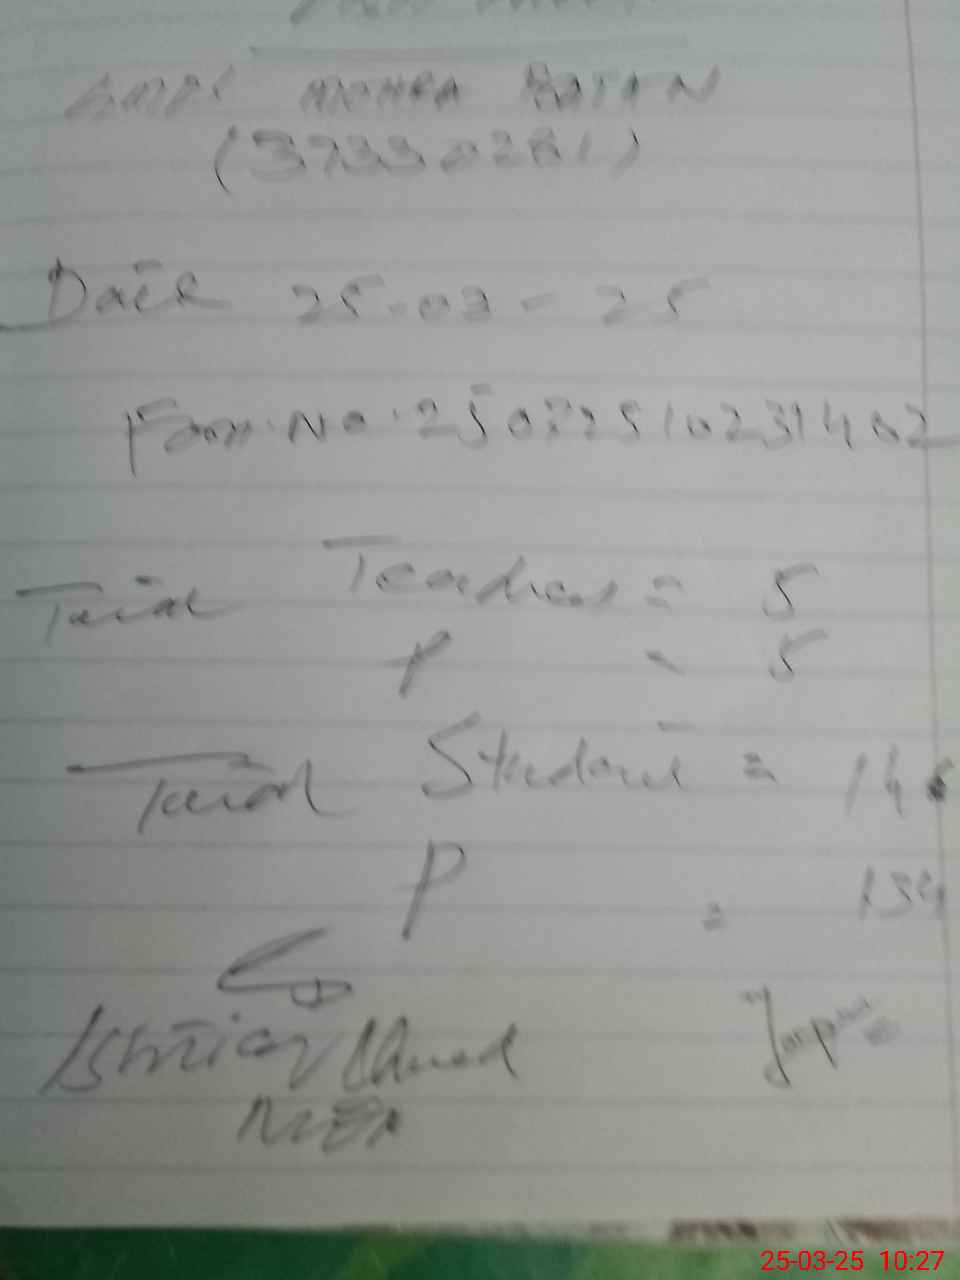 GMPS MOHRA RATAN
(37330281)
Date 25-03-25
Form No. 25032510231402
Total Teachers = 5
P = 5
Total Student = 14
P = 134
Ishtiaq Ahmed
MEA
25-03-25 10:27